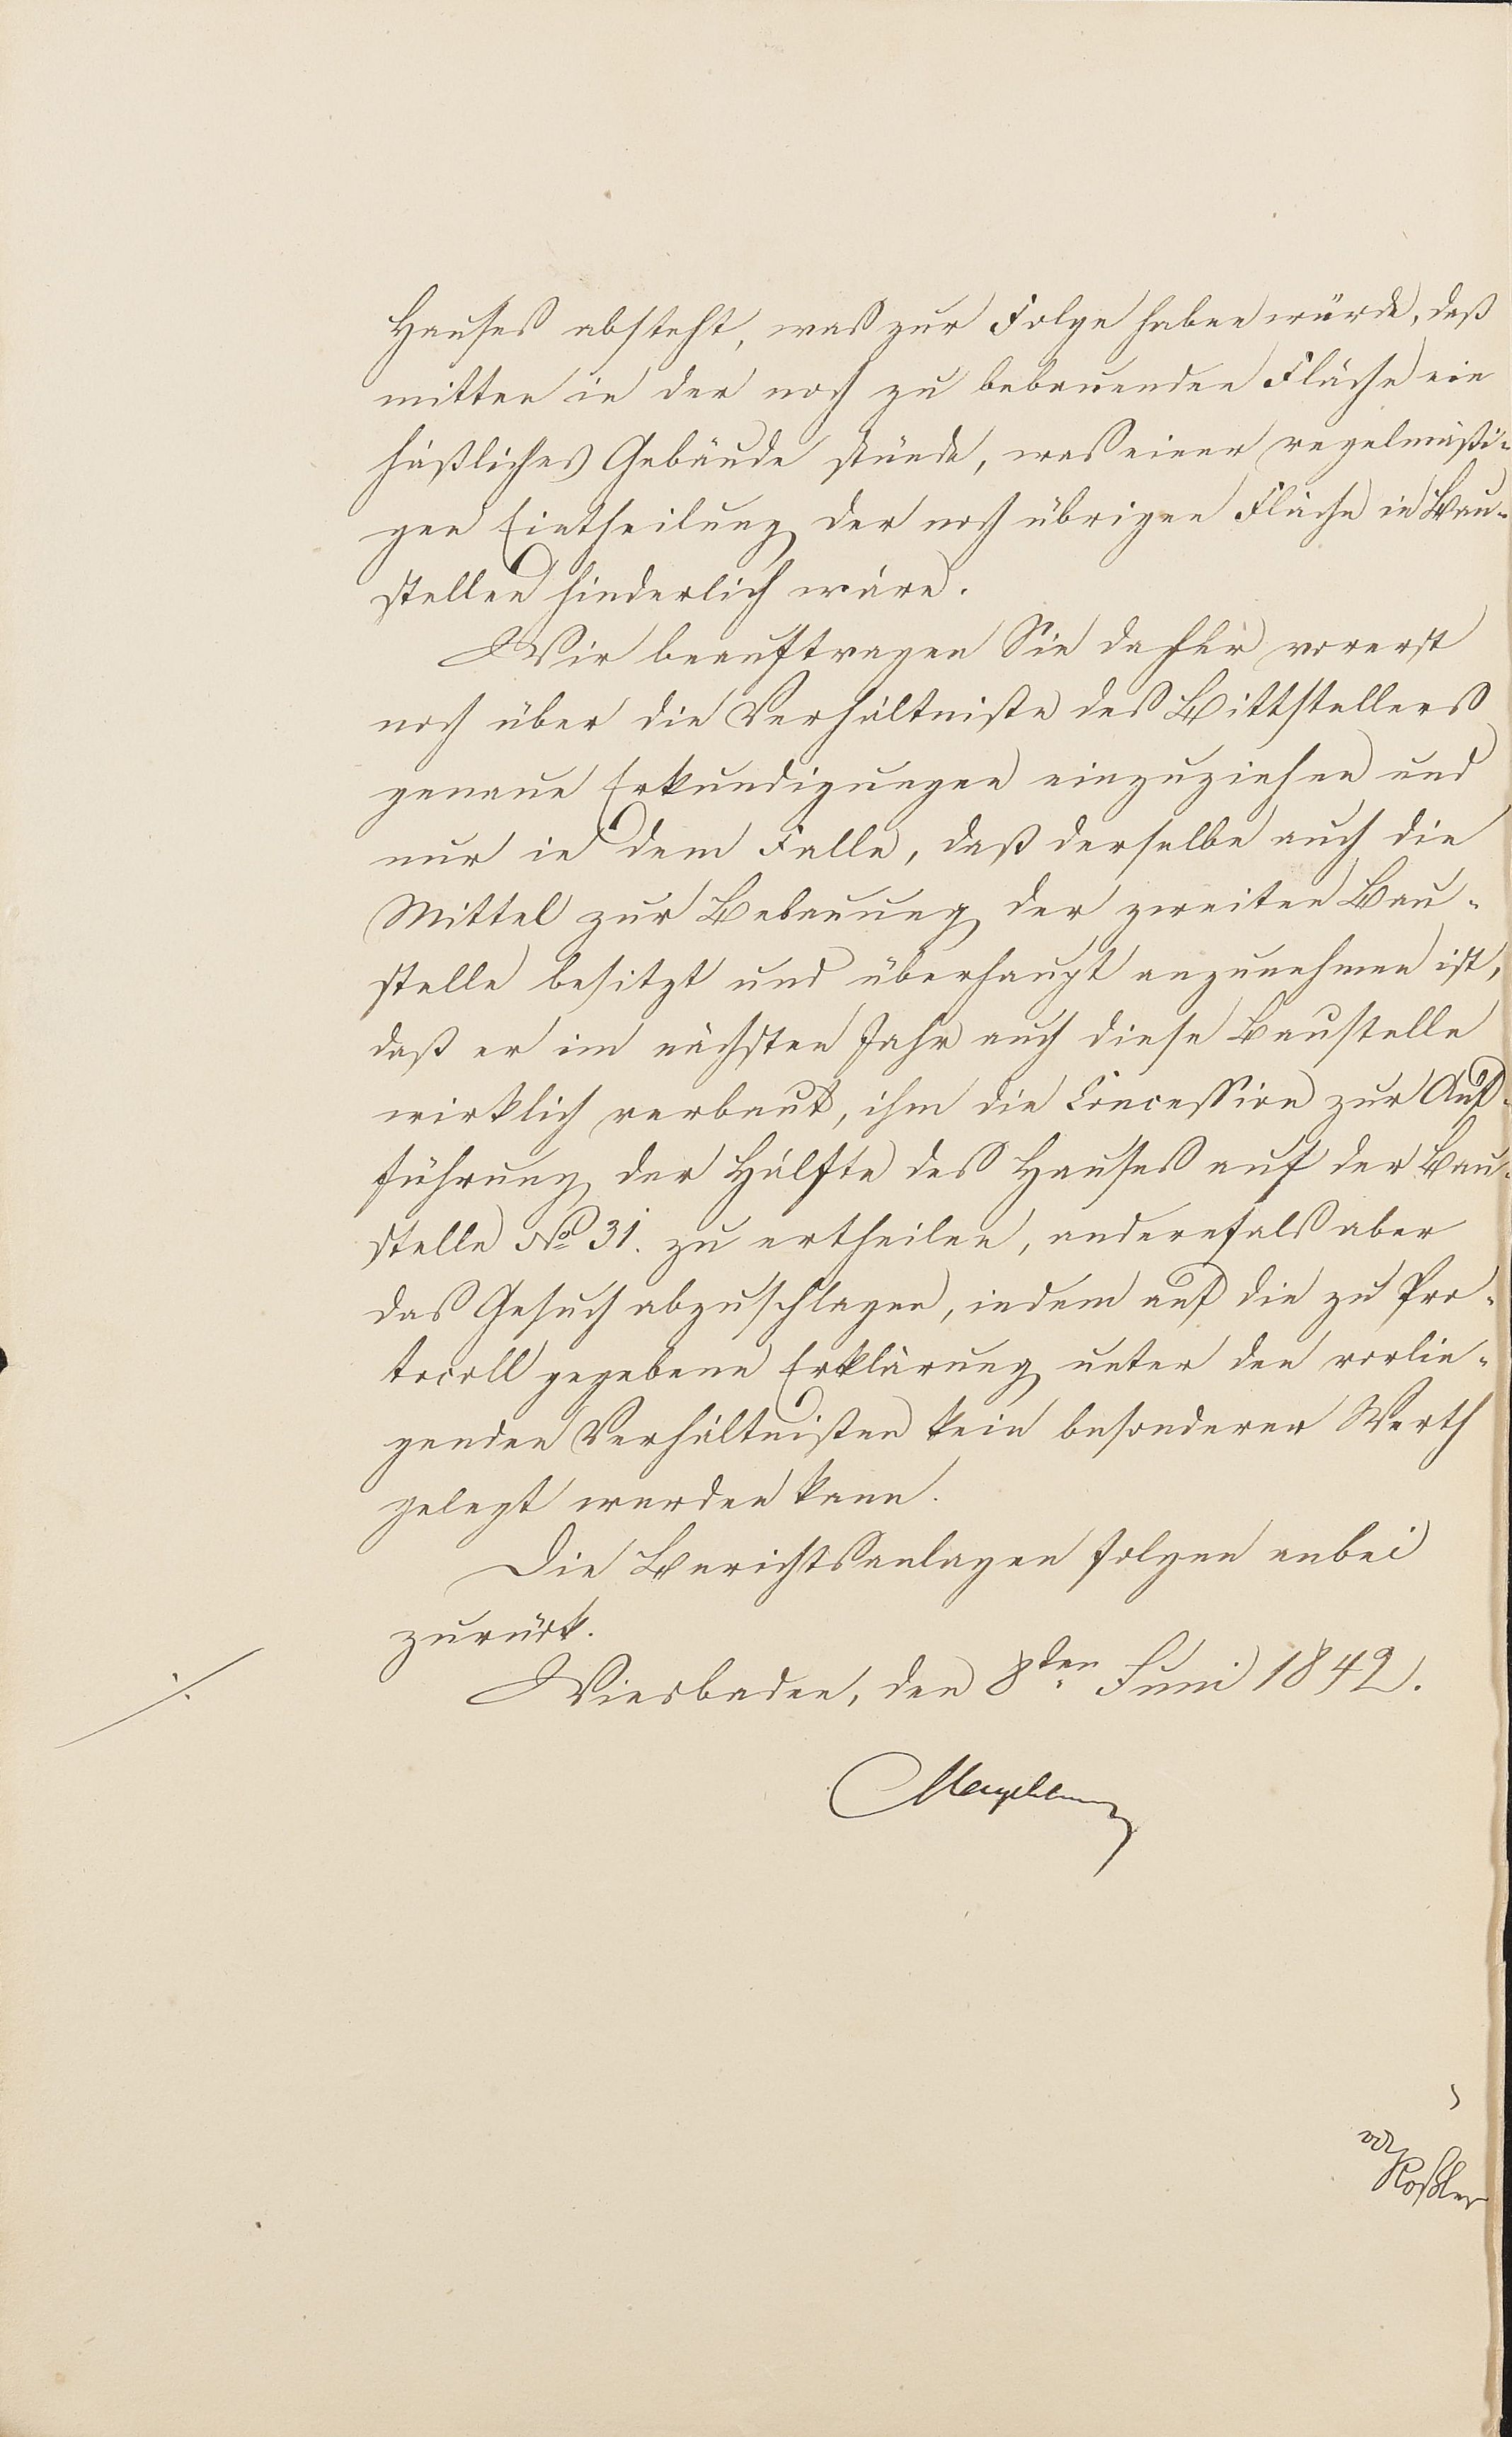 Hauses absteht, was zur Folge haben würde, daß
mitten in der noch zu bebauenden Fläche ein
häßliches Gebäude stünde, was einer regelmäßi-
gen Eintheilung der noch übrigen Fläche in Bau-
stellen hinderlich wäre.
Wir beauftragen Sie daher vorerst
noch über die Verhältnisse des Bittstellers
genaue Erkundigungen einzuziehen und
nur in dem Falle, daß derselbe auch die
Mittel zur Bebauung der zweiten Bau-
stelle besitzt und überhaupt anzunehmen ist,
daß er im nächsten Jahr auch diese Baustelle
wirklich verbaut, ihm die Concession zur Auf-
führung der Hälfte des Hauses auf der Bau-
stelle No 31. zu ertheilen, anderenfals aber
das Gesuch abzuschlagen, indem auf die zu Pro-
tocoll gegebene Erklärung unter den vorlie-
genden Verhältnissen kein besonderer Werth
gelegt werden kann.
Die Berichtsanlagen folgen anbei
zurück.
Wiesbaden, den 8ten Juni 1842.
vdt
Roßler